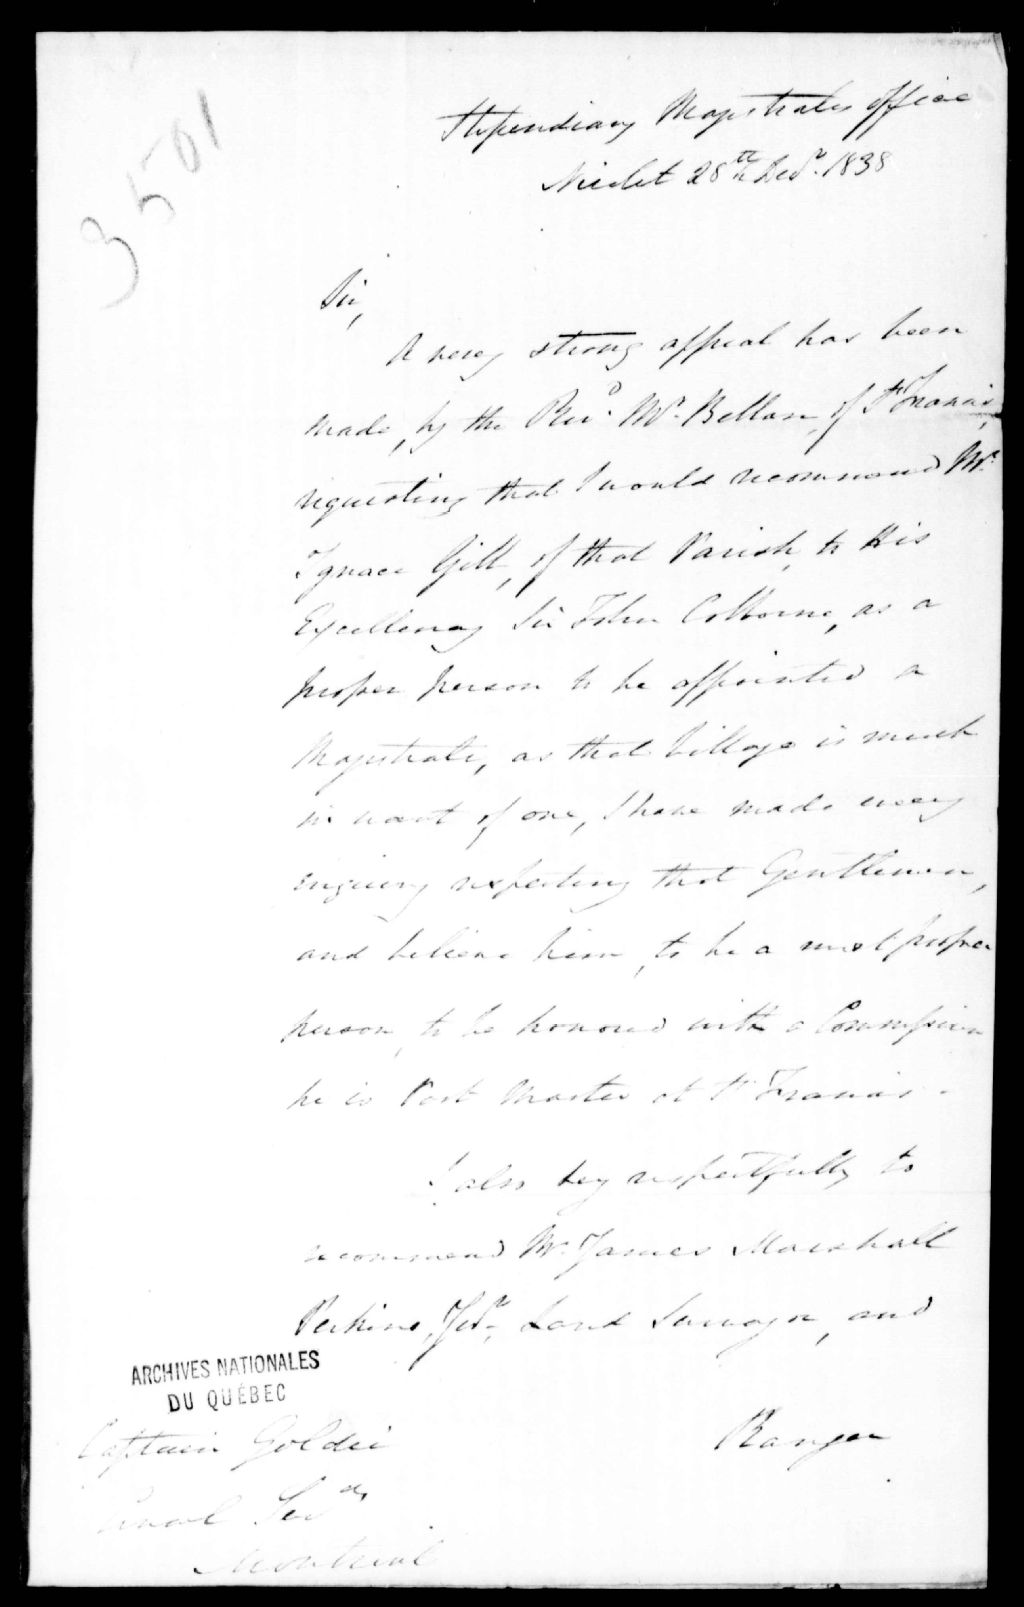 3501
Stipendiary Magistrates office
Nicolet 28th Decr. 1838
Sir,
A very strong appeal has been
made, by the Revd. Mr. Bellan, of St Francis,
requesting that I would recommend Mr.
Ignace Gill, of that Parish, to His
Excellency Sir John Colborne, as a
proper person to be appointed a
Magistrate, as that Village is much
in want of one, I have made every
enquiry respecting that Gentleman,
and believe him, to be a most proper
person, to be honored with a Commission
he is Post Master at St Francis -
I also beg respectfully to
recommend Mr. James Marshall
Perkins, Land Surveyor, and
ARCHIVES NATIONALES
DU QUÉBEC
Captain Goldie
Secy
Montreal
Ranger